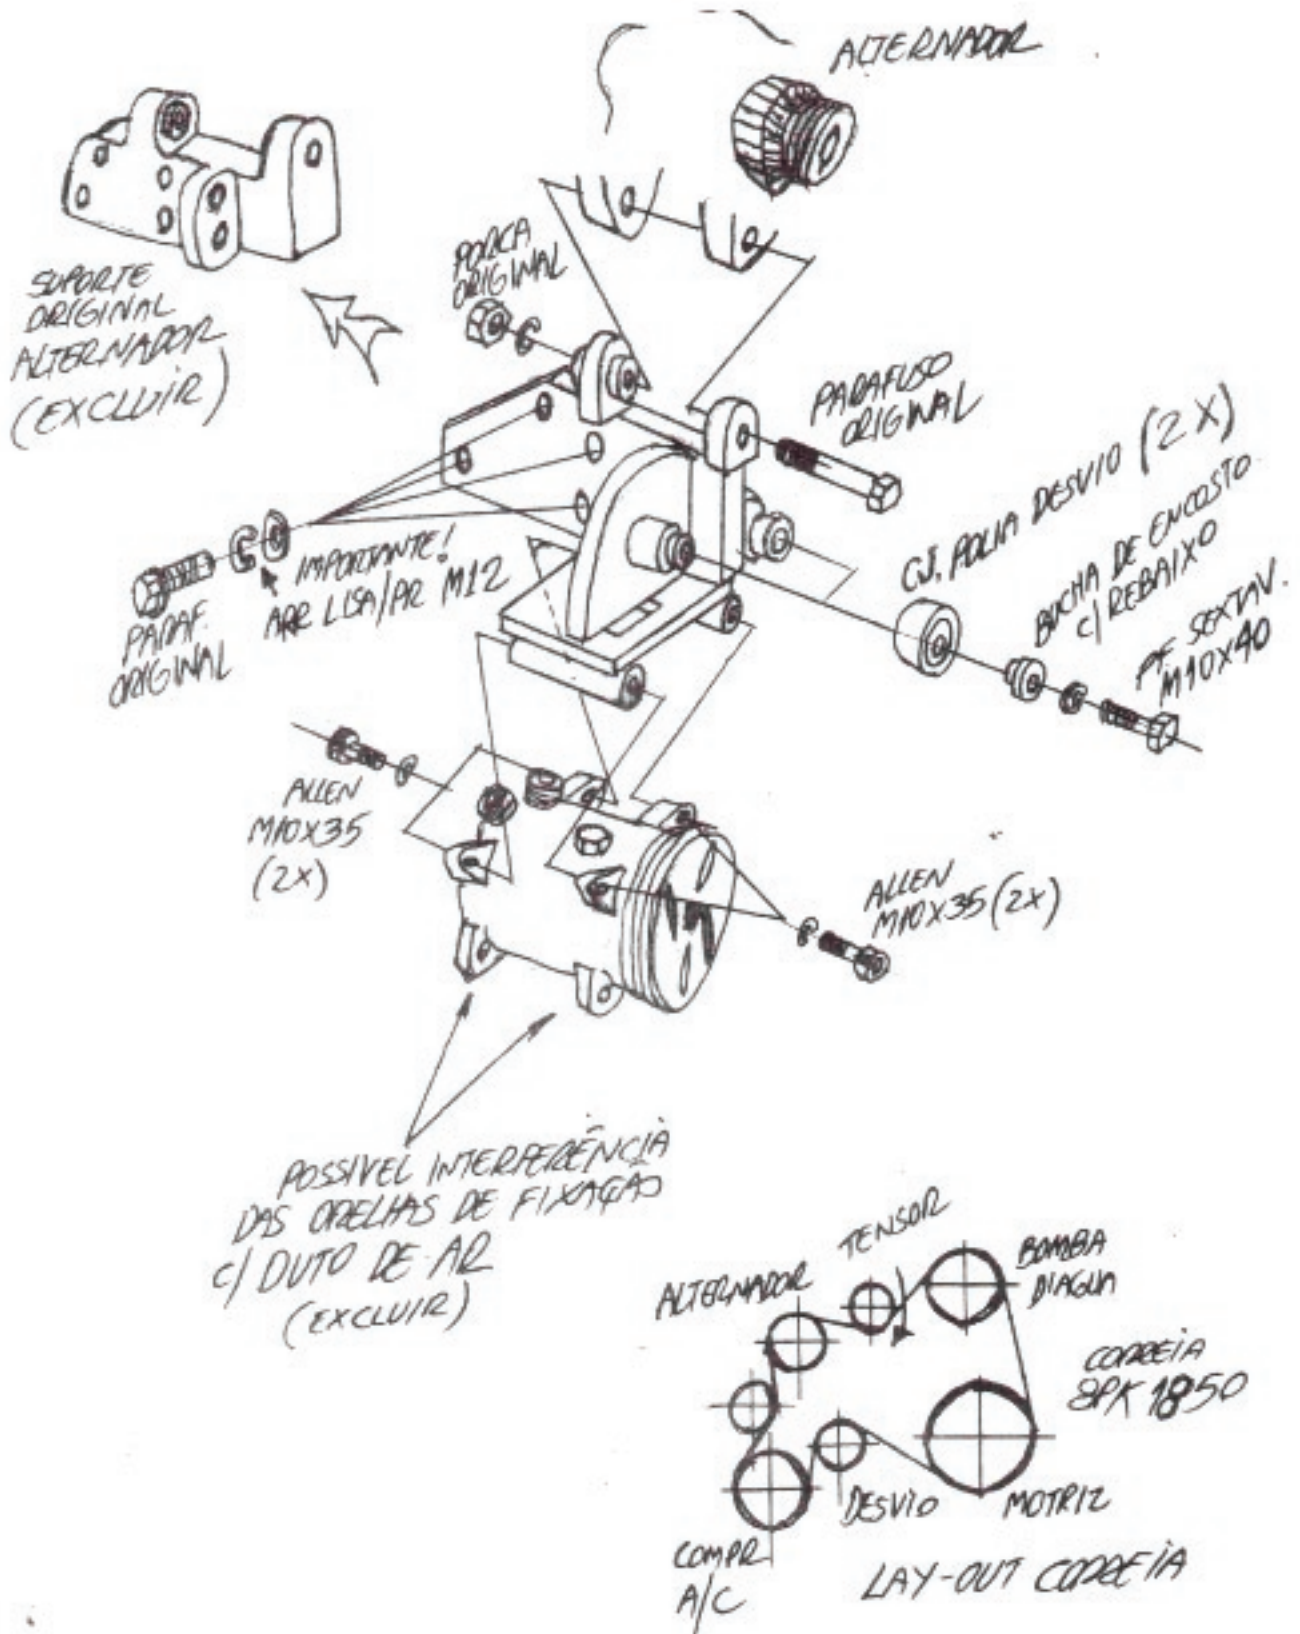 ALTERNADOR
SUPORTE
ORIGINAL
ALTERNADOR
(EXCLUIR)
PORCA
ORIGINAL
PARAFUSO
ORIGINAL
CJ. POLIA DESVIO (2X)
BUCHA DE ENCOSTO
C/ REBAIXO
PF. SEXTAV.
M10X40
IMPORTANTE!
ARR LISA/PR M12
PARAF.
ORIGINAL
ALLEN
M10X35
(2X)
ALLEN
M10X35 (2X)
POSSIVEL INTERFERÊNCIA
DAS ORELHAS DE FIXAÇÃO
C/ DUTO DE AR
(EXCLUIR)
TENSOR
ALTERNADOR
BOMBA
D'AGUA
CORREIA
8PK 1850
DESVIO
MOTRIZ
COMPR
A/C
LAY-OUT CORREIA